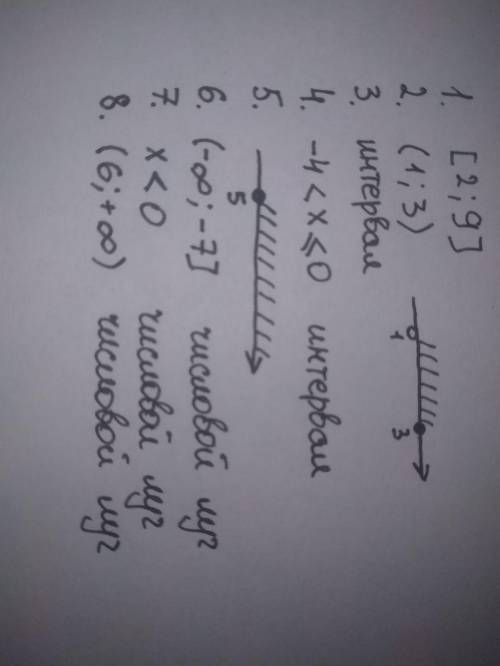 1. [2;9]
2. (1;3) 1 3
3. интервал
4. -4 < x ≤ 0 интервал
5. 5
6. (-∞;-7] числовой луч
7. x < 0 числовой луч
8. (6;+∞) числовой луч